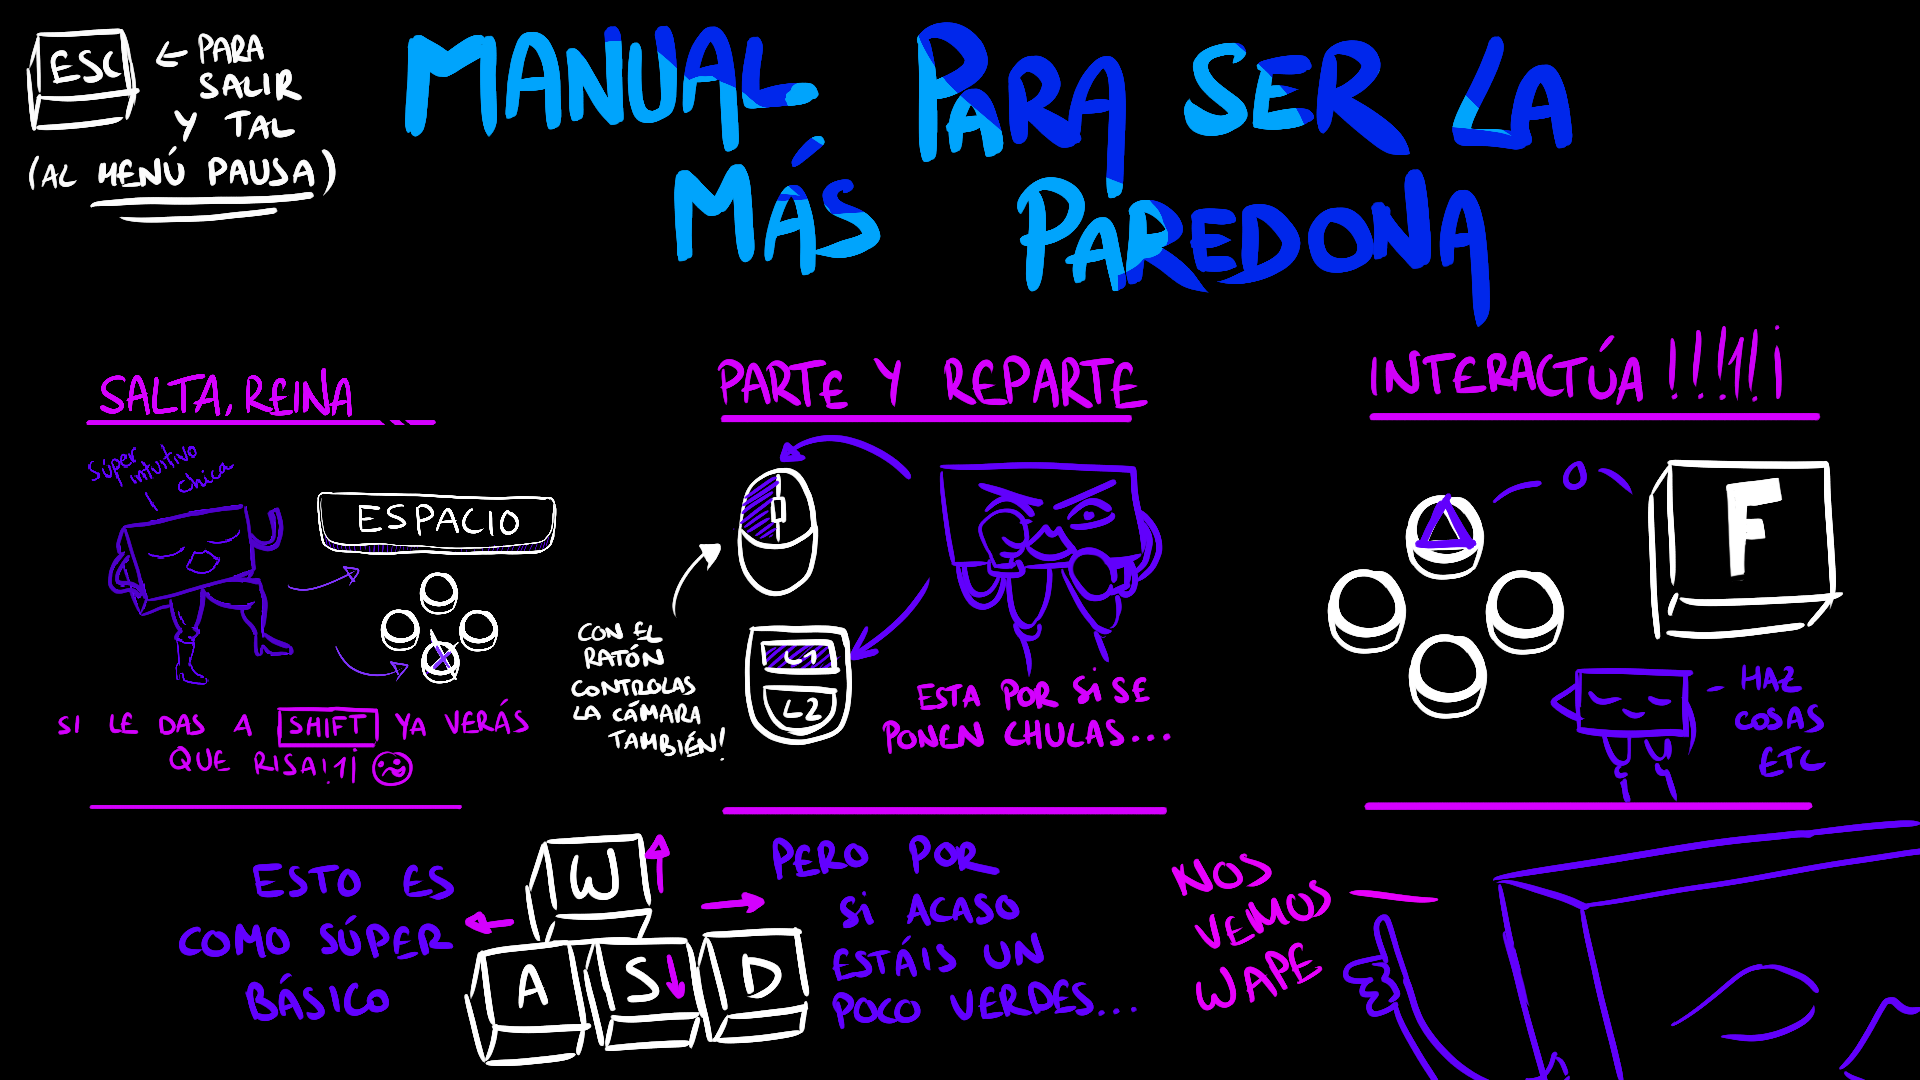 ESC
← PARA
SALIR
Y TAL
(AL MENÚ PAUSA)
MANUAL PARA SER LA
MÁS PAREDONA
SALTA, REINA
Súper
intuitivo
chica
ESPACIO
X
SI LE DAS A SHIFT YA VERÁS
QUE RISA!1¡
PARTE Y REPARTE
CON EL
RATÓN
CONTROLAS
LA CÁMARA
TAMBIÉN!
L1
L2
ESTA POR SI SE
PONEN CHULAS...
INTERACTÚA !!!1!¡
O
F
- HAZ
COSAS
ETC
ESTO ES
COMO SÚPER
BÁSICO
W
A S D
PERO POR
SI ACASO
ESTÁIS UN
POCO VERDES...
NOS
VEMOS
WAPE